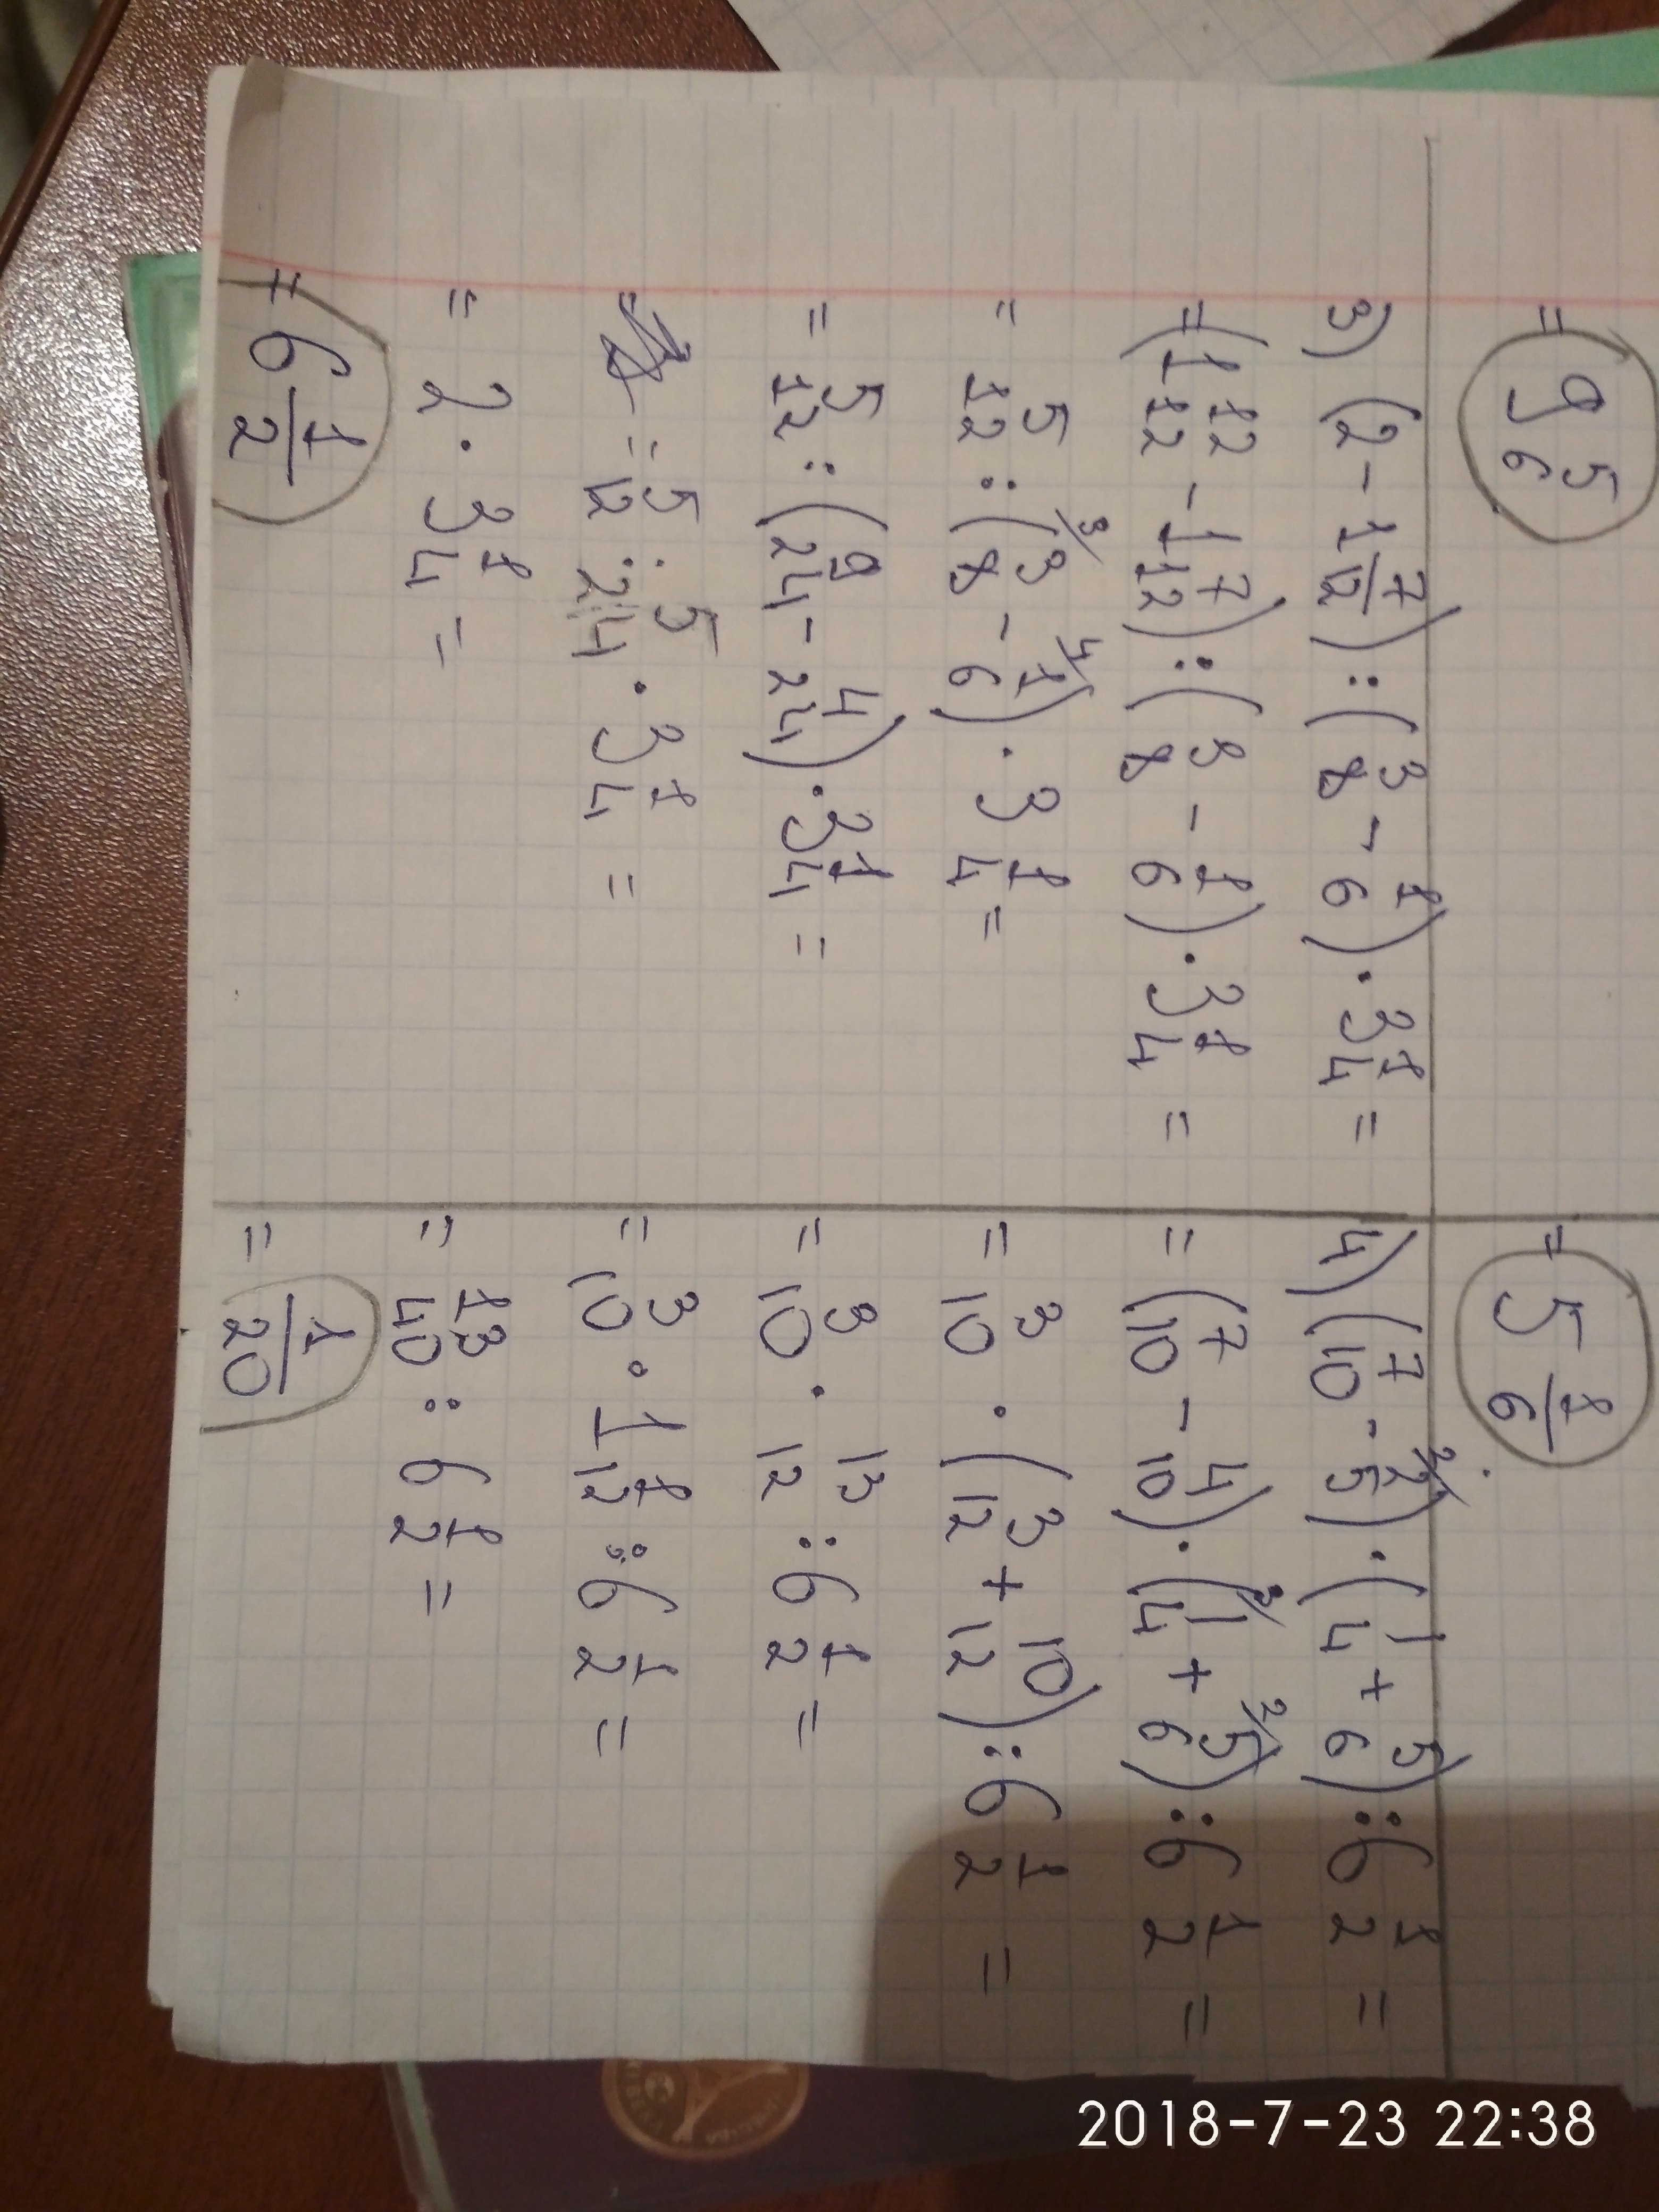 = 9 5/6
= 5 1/6
3) (2 - 1 7/12) : (3/8 - 1/6) · 3 1/4 =
= (1 12/12 - 1 7/12) : (3/8 - 1/6) · 3 1/4 =
= 5/12 : (3/8 - 1/6) · 3 1/4 =
= 5/12 : (9/24 - 4/24) · 3 1/4 =
= 5/12 : 5/24 · 3 1/4 =
= 2 · 3 1/4 =
= 6 1/2
4) (7/10 - 2/5) · (1/4 + 5/6) : 6 1/2 =
= (7/10 - 4/10) · (1/4 + 5/6) : 6 1/2 =
= 3/10 · (3/12 + 10/12) : 6 1/2 =
= 3/10 · 13/12 : 6 1/2 =
= 3/10 · 1 1/12 : 6 1/2 =
= 13/40 : 6 1/2 =
= 1/20
2018-7-23 22:38